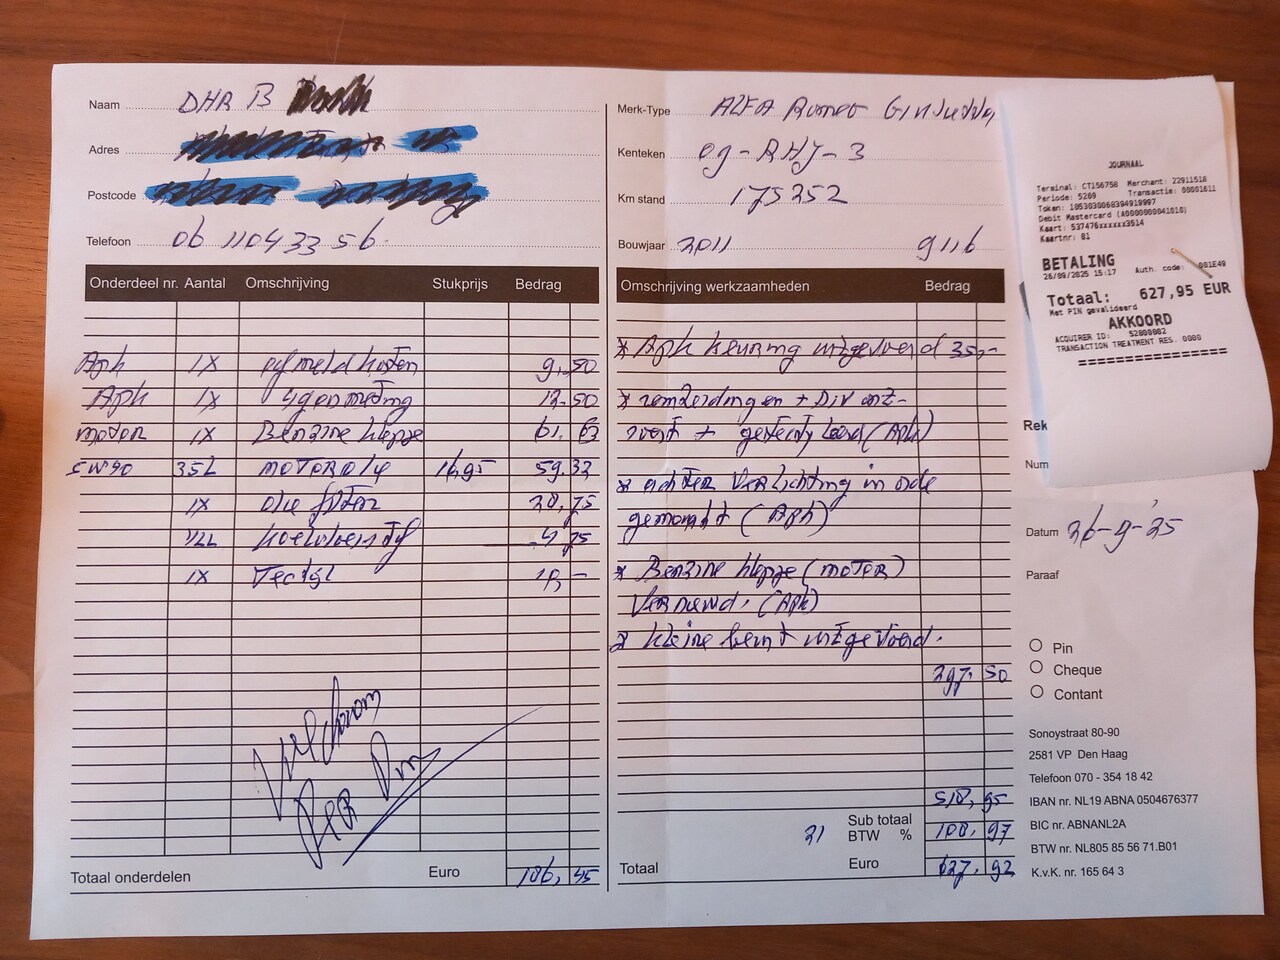 Naam DHR B
Adres
Postcode
Telefoon 06 11043356
Onderdeel nr. Aantal Omschrijving Stukprijs Bedrag
Apk 1X afmeldkosten 9,50
Apk 1X 4gasmeting 12.50
motor 1X Benzine klepje 61,63
5W40 35L MOTOROLie 16,95 59.32
1X olie filter 28,75
1/2L koelvloeistof 4,75
1X 10,-
Voldaan
PER Pin
Totaal onderdelen Euro 186,45
Merk-Type ALFA Romeo Giulietta
Kenteken 09-RHJ-3
Km stand 175252
Bouwjaar 2011 9116
Omschrijving werkzaamheden Bedrag
* Apk keuring uitgevoerd 35,-
* remleidingen + Div ont-
roest + getectyleerd (Apk)
* achter Verlichting in orde
gemaakt (Apk)
* Benzine klepje (motor)
Vernieuwd. (Apk)
* kleine beurt uitgevoerd.
297,50
Sub totaal 518,95
21 BTW % 108,97
Totaal Euro 627,92
JOURNAAL
Terminal: CT156758 Merchant: 22911518
Periode: 5269 Transactie: 00001611
Token: 1053030068394919997
Debit Mastercard (A0000000041010)
Kaart: 537476xxxxxx3514
Kaartnr: 01
BETALING
26/09/2025 15:17 Auth. code: 001E49
Totaal: 627,95 EUR
Met PIN gevalideerd
AKKOORD
ACQUIRER ID: 52800002
TRANSACTION TREATMENT RES. 0000
================
Rek
Num
Datum 26-9-'25
Paraaf
Pin
Cheque
Contant
Sonoystraat 80-90
2581 VP Den Haag
Telefoon 070 - 354 18 42
IBAN nr. NL19 ABNA 0504676377
BIC nr. ABNANL2A
BTW nr. NL805 85 56 71.B01
K.v.K. nr. 165 64 3